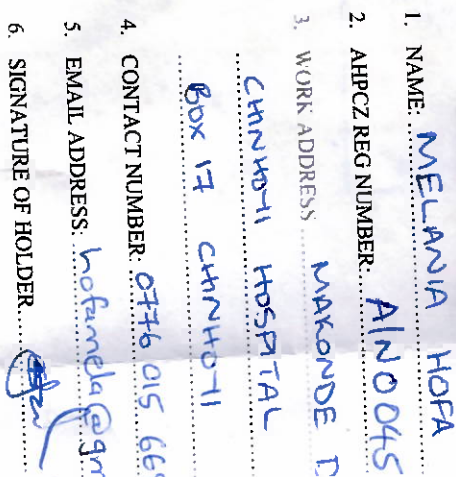 1. NAME: MELANIA HOFA
2. AHPCZ REG NUMBER: A/N0045
3. WORK ADDRESS MAKONDE D
CHINHOYI HOSPITAL
BOX 17 CHINHOYI
4. CONTACT NUMBER: 0776 015 66
5. EMAIL ADDRESS: hofamela@gm
6. SIGNATURE OF HOLDER